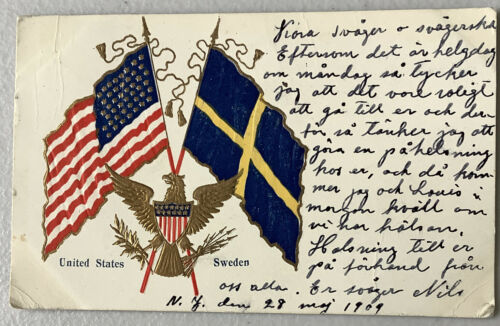 Kära svåger o svägerska
Eftersom det är helgdag
om måndag så tycker
jag att det vore roligt
att gå till er och der-
för så tänker jag att
göra en påhelsning
hos er, och då kom
mer jag och Louis i
morgon kväll om
vi har hälsan.
Helsning till er
på förhand från
oss alla. Er svåger Nils
United States
Sweden
N. Y. den 28 maj 1909